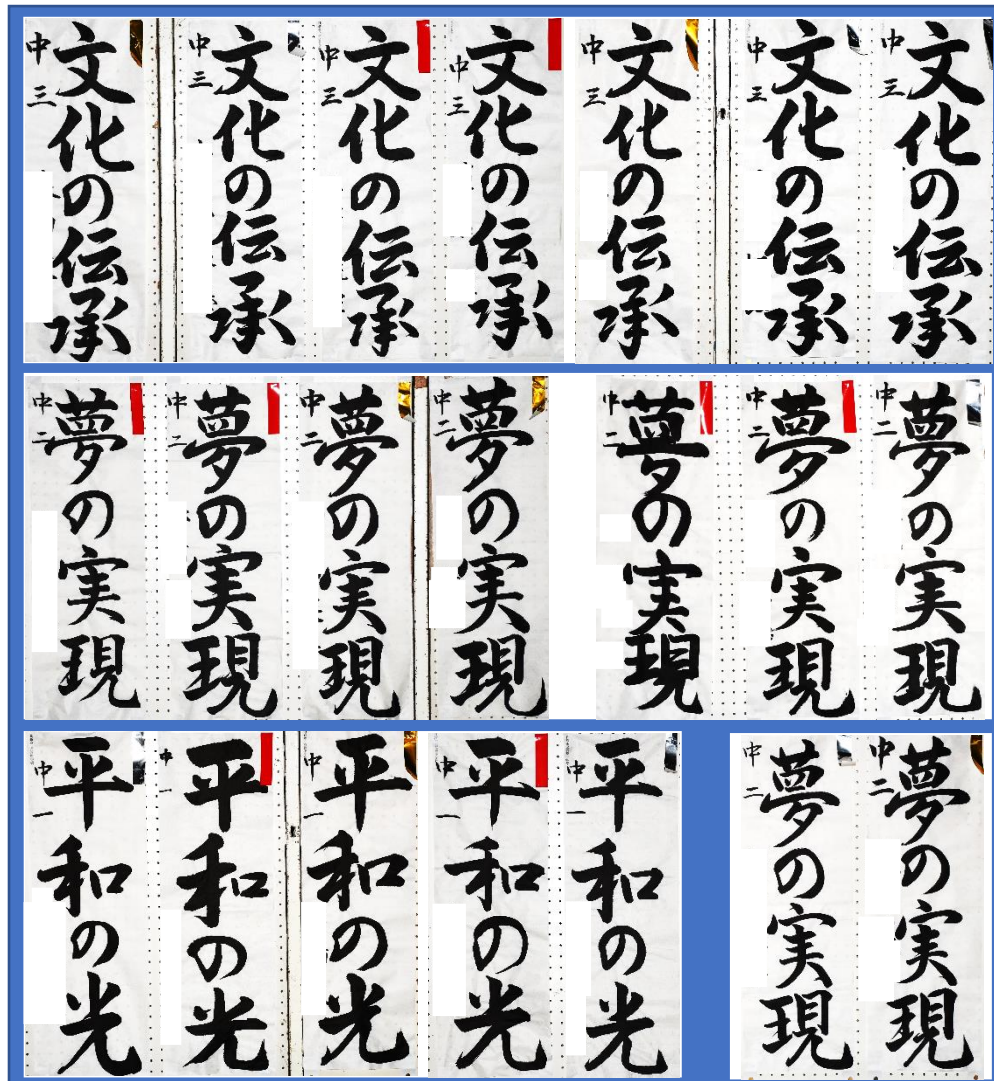 文化の伝承
中三
文化の伝承
中三
文化の伝承
中三
文化の伝承
中三
文化の伝承
中三
文化の伝承
中三
文化の伝承
中三
夢の実現
中二
夢の実現
中二
夢の実現
中二
夢の実現
中二
夢の実現
中二
夢の実現
中二
夢の実現
中二
夢の実現
中二
夢の実現
中二
平和の光
中一
平和の光
中一
平和の光
中一
平和の光
中一
平和の光
中一